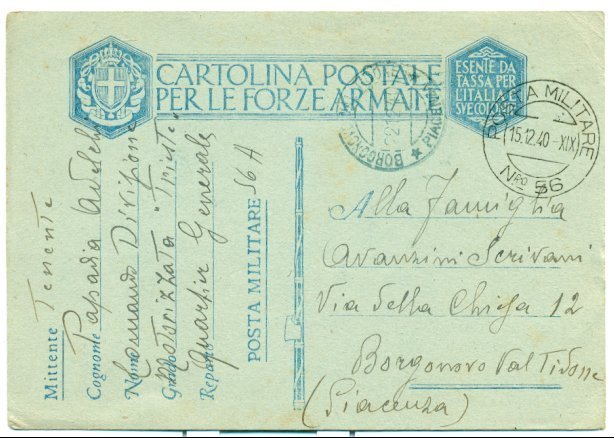 CARTOLINA POSTALE
PER LE FORZE ARMATE
ESENTE DA
TASSA PER
L'ITALIA E
SVE COLONIE
POSTA MILITARE
15.12.40-XIX
Nro 56
BORGONOVO
PIACENZA
Mittente Tenente
Cognome Papadia
Nome Comando Divisione
Grado Motorizzata "Trieste"
Reparto Quartier Generale
POSTA MILITARE 56 A
Alla Famiglia
Avanzini Scrivani
Via della Chiesa 12
Borgonovo Val Tidone
(Piacenza)